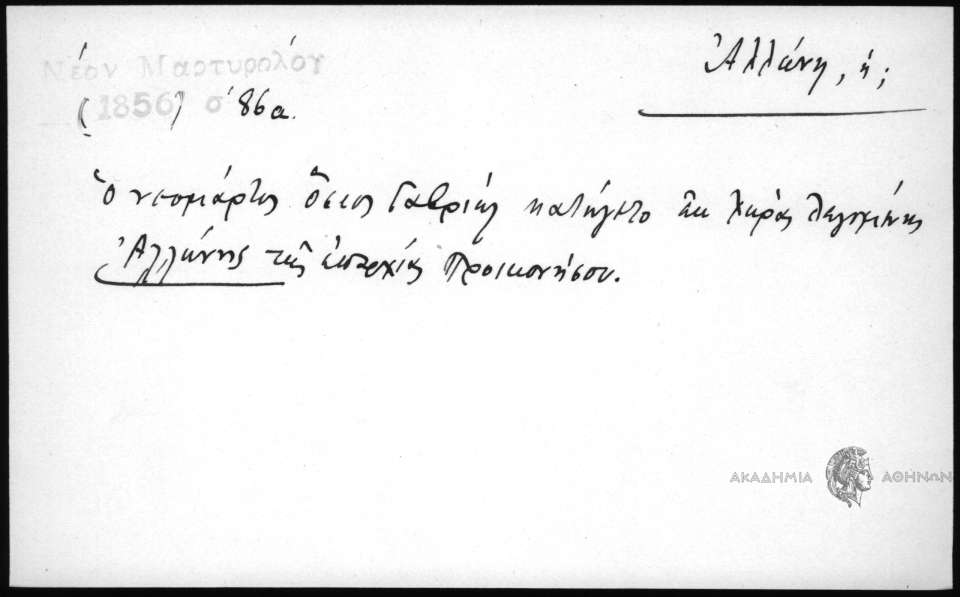 Νέον Μαρτυρολόγ
(1856) σ. 86α.
Ἀλλώνη, ἡ;
Ὁ νεομάρτυς ὅσιος Γαβριήλ κατήγετο ἐκ χώρας λεγομένης
Ἀλλώνης τῆς ἐπαρχίας Προικονήσου.
ΑΚΑΔΗΜΙΑ ΑΘΗΝΩΝ